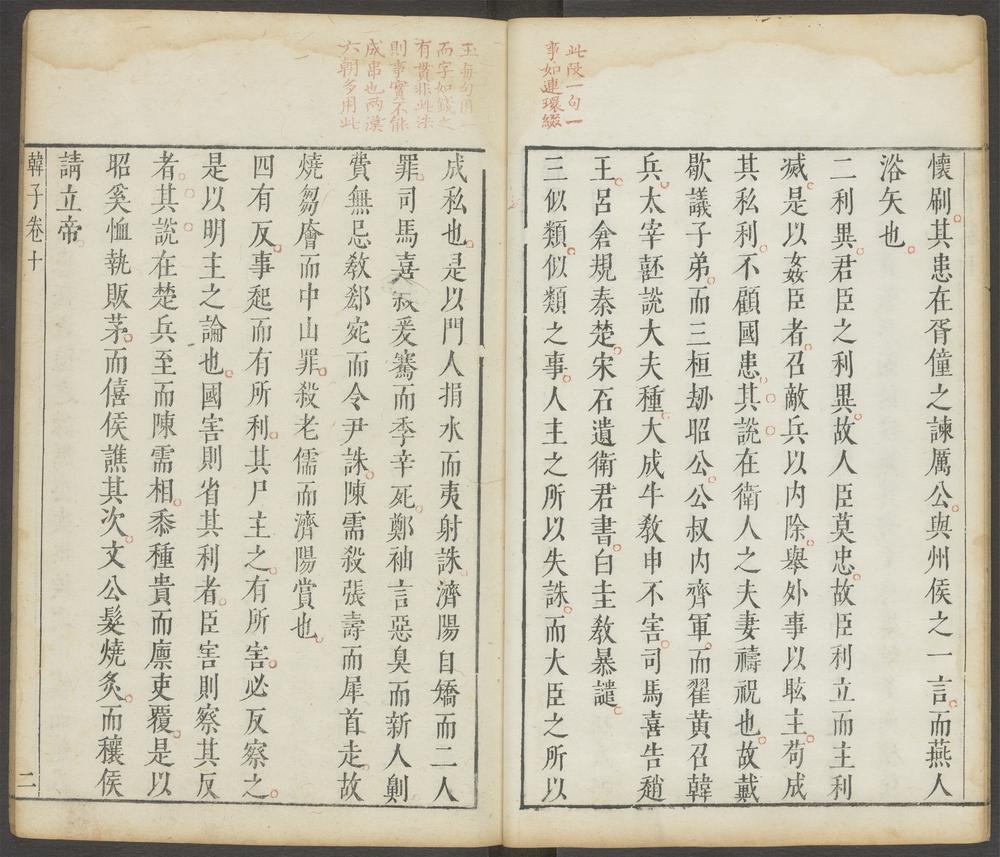 此段一句一
事如連環綴
懷刷其患在胥僮之諫厲公與州侯之一言而燕人
浴矢也
二利異君臣之利異故人臣莫忠故臣利立而主利
滅是以姦臣者召敵兵以内除舉外事以眩主苟成
其私利不顧國患其說在衛人之夫妻禱祝也故戴
歇議子弟而三桓刼昭公公叔内齊軍而翟黄召韓
兵太宰嚭說大夫種大成牛教申不害司馬喜告趙
王呂倉規秦楚宋石遺衛君書白圭教暴譴
三似類似類之事人主之所以失誅而大臣之所以
玉每句用一
而字如錢之
有貫非此法
則事實不能
成串也两漢
六朝多用此
成私也是以門人捐水而夷射誅濟陽自矯而二人
罪司馬喜殺爰騫而季辛死鄭袖言惡臭而新人劓
費無忌教郄宛而令尹誅陳需殺張壽而犀首走故
燒芻廥而中山罪殺老儒而濟陽賞也
四有反事起而有所利其尸主之有所害必反察之
是以明主之論也國害則省其利者臣害則察其反
者其說在楚兵至而陳需相黍種貴而廩吏覆是以
昭奚恤執販茅而僖侯譙其次文公髮燒炙而穰侯
請立帝
韓子卷十
二